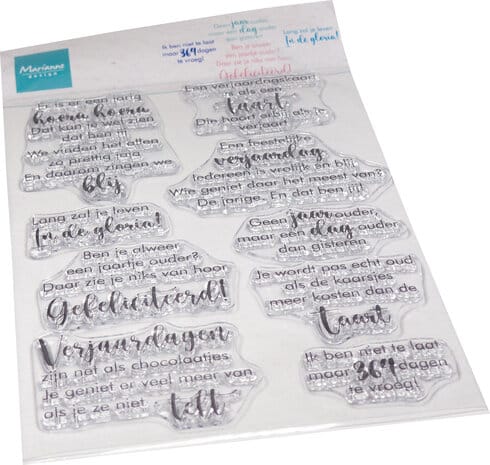 Marianne
design
Ik ben niet te laat
maar 364 dagen
te vroeg!
Geen jaar ouder,
maar een dag ouder
dan gisteren
Ben je alweer
een jaartje ouder?
Daar zie je niks van hoor
Gefeliciteerd!
Lang zal je leven
In de gloria!
Er is er een jarig
hoera hoera
Dat kun je wel zien
dat ben jij!
We vinden het allen
zo prettig ja ja
En daarom zingen we
blij
Lang zal je leven
In de gloria!
Ben je alweer
een jaartje ouder?
Daar zie je niks van hoor
Gefeliciteerd!
Verjaardagen
zijn net als chocolaatjes
Je geniet er veel meer van
als je ze niet
telt
Een verjaardagskaart
is als een
taart
Die hoort erbij als je
verjaart
Een beste
verjaardag
Iedereen is vrolijk en blij
Wie geniet daar het meest van?
De jarige. En dat ben jij!
Geen jaar ouder,
maar een dag ouder
dan gisteren
Je wordt pas echt oud
als de kaarsjes
meer kosten dan de
taart
Ik ben niet te laat
maar 364 dagen
te vroeg!